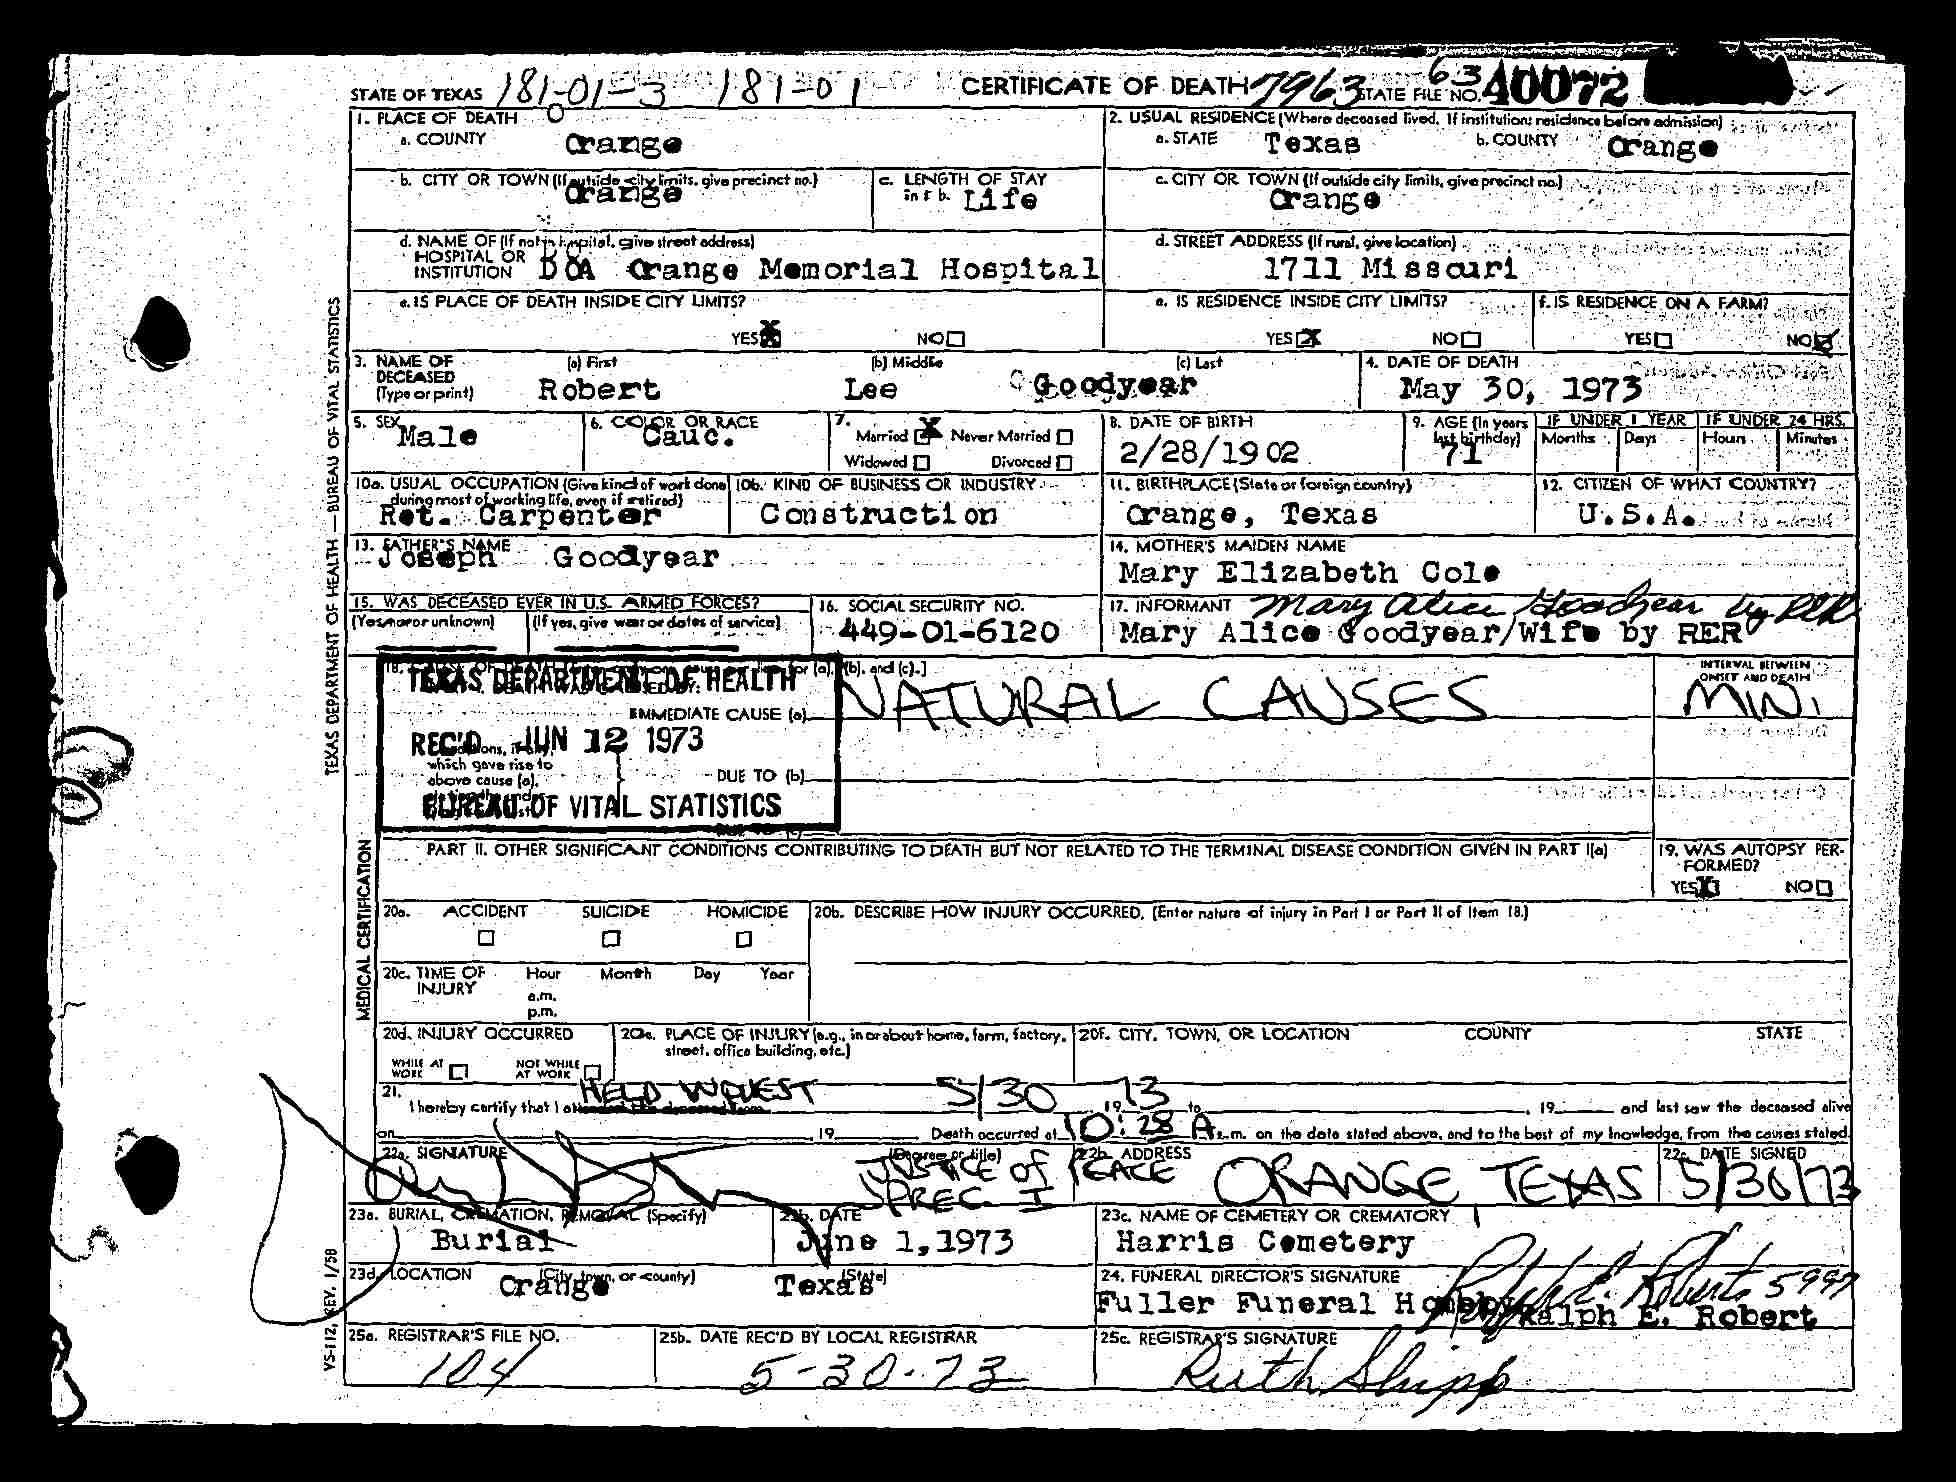 STATE OF TEXAS 181-01-3 181-01 CERTIFICATE OF DEATH 7963 STATE FILE NO. 63 40072
1. PLACE OF DEATH
a. COUNTY Orange
2. USUAL RESIDENCE (Where deceased lived. If institution: residence before admission)
a. STATE Texas b. COUNTY Orange
b. CITY OR TOWN (If outside city limits, give precinct no.) Orange
c. LENGTH OF STAY in 1 b. Life
c. CITY OR TOWN (If outside city limits, give precinct no.) Orange
d. NAME OF (If not in hospital, give street address)
HOSPITAL OR
INSTITUTION DOA Orange Memorial Hospital
d. STREET ADDRESS (If rural, give location)
1711 Missouri
e. IS PLACE OF DEATH INSIDE CITY LIMITS?
YES X NO
e. IS RESIDENCE INSIDE CITY LIMITS?
YES X NO
f. IS RESIDENCE ON A FARM?
YES NO X
3. NAME OF DECEASED (Type or print)
(a) First (b) Middle (c) Last
Robert Lee Goodyear
4. DATE OF DEATH
May 30, 1973
5. SEX Male
6. COLOR OR RACE Cauc.
7. Married X Never Married
Widowed Divorced
8. DATE OF BIRTH
2/28/1902
9. AGE (In years last birthday) 71
IF UNDER 1 YEAR Months Days
IF UNDER 24 HRS. Hours Minutes
10a. USUAL OCCUPATION (Give kind of work done during most of working life, even if retired)
Ret. Carpenter
10b. KIND OF BUSINESS OR INDUSTRY
Construction
11. BIRTHPLACE (State or foreign country)
Orange, Texas
12. CITIZEN OF WHAT COUNTRY?
U.S.A.
13. FATHER'S NAME
Joseph Goodyear
14. MOTHER'S MAIDEN NAME
Mary Elizabeth Cole
15. WAS DECEASED EVER IN U.S. ARMED FORCES?
(Yes, no or unknown) (If yes, give war or dates of service)
16. SOCIAL SECURITY NO.
449-01-6120
17. INFORMANT Mary Alice Goodyear by RER
Mary Alice Goodyear/Wife by RER
18. CAUSE OF DEATH for (a), (b), and (c).]
TEXAS DEPARTMENT OF HEALTH
REC'D JUN 12 1973
BUREAU OF VITAL STATISTICS
IMMEDIATE CAUSE (a) NATURAL CAUSES
INTERVAL BETWEEN ONSET AND DEATH
MIN.
which gave rise to
above cause (a),
DUE TO (b)
PART II. OTHER SIGNIFICANT CONDITIONS CONTRIBUTING TO DEATH BUT NOT RELATED TO THE TERMINAL DISEASE CONDITION GIVEN IN PART I(a)
19. WAS AUTOPSY PERFORMED?
YES X NO
20a. ACCIDENT SUICIDE HOMICIDE
20b. DESCRIBE HOW INJURY OCCURRED. (Enter nature of injury in Part I or Part II of Item 18.)
20c. TIME OF INJURY Hour Month Day Year
a.m.
p.m.
20d. INJURY OCCURRED
WHILE AT WORK NOT WHILE AT WORK
20e. PLACE OF INJURY (e.g., in or about home, farm, factory, street, office building, etc.)
20f. CITY, TOWN, OR LOCATION COUNTY STATE
HELD INQUEST 5/30 73
21. I hereby certify that I attended the deceased from 19 to , 19 and last saw the deceased alive
on 19 Death occurred at 10:28 A m. on the date stated above, and to the best of my knowledge, from the causes stated.
22a. SIGNATURE (Degree or title)
JUSTICE OF PEACE
PREC. I
22b. ADDRESS
ORANGE, TEXAS
22c. DATE SIGNED
5/30/73
23a. BURIAL, CREMATION, REMOVAL (Specify)
Burial
23b. DATE
June 1, 1973
23c. NAME OF CEMETERY OR CREMATORY
Harris Cemetery
23d. LOCATION (City, town, or county) (State)
Orange Texas
24. FUNERAL DIRECTOR'S SIGNATURE
Ralph E. Roberts 5997
Fuller Funeral Home by Ralph E. Robert
25a. REGISTRAR'S FILE NO.
104
25b. DATE REC'D BY LOCAL REGISTRAR
5-30-73
25c. REGISTRAR'S SIGNATURE
Ruth Shipp
TEXAS DEPARTMENT OF HEALTH — BUREAU OF VITAL STATISTICS
MEDICAL CERTIFICATION
VS-112, REV. 1/58